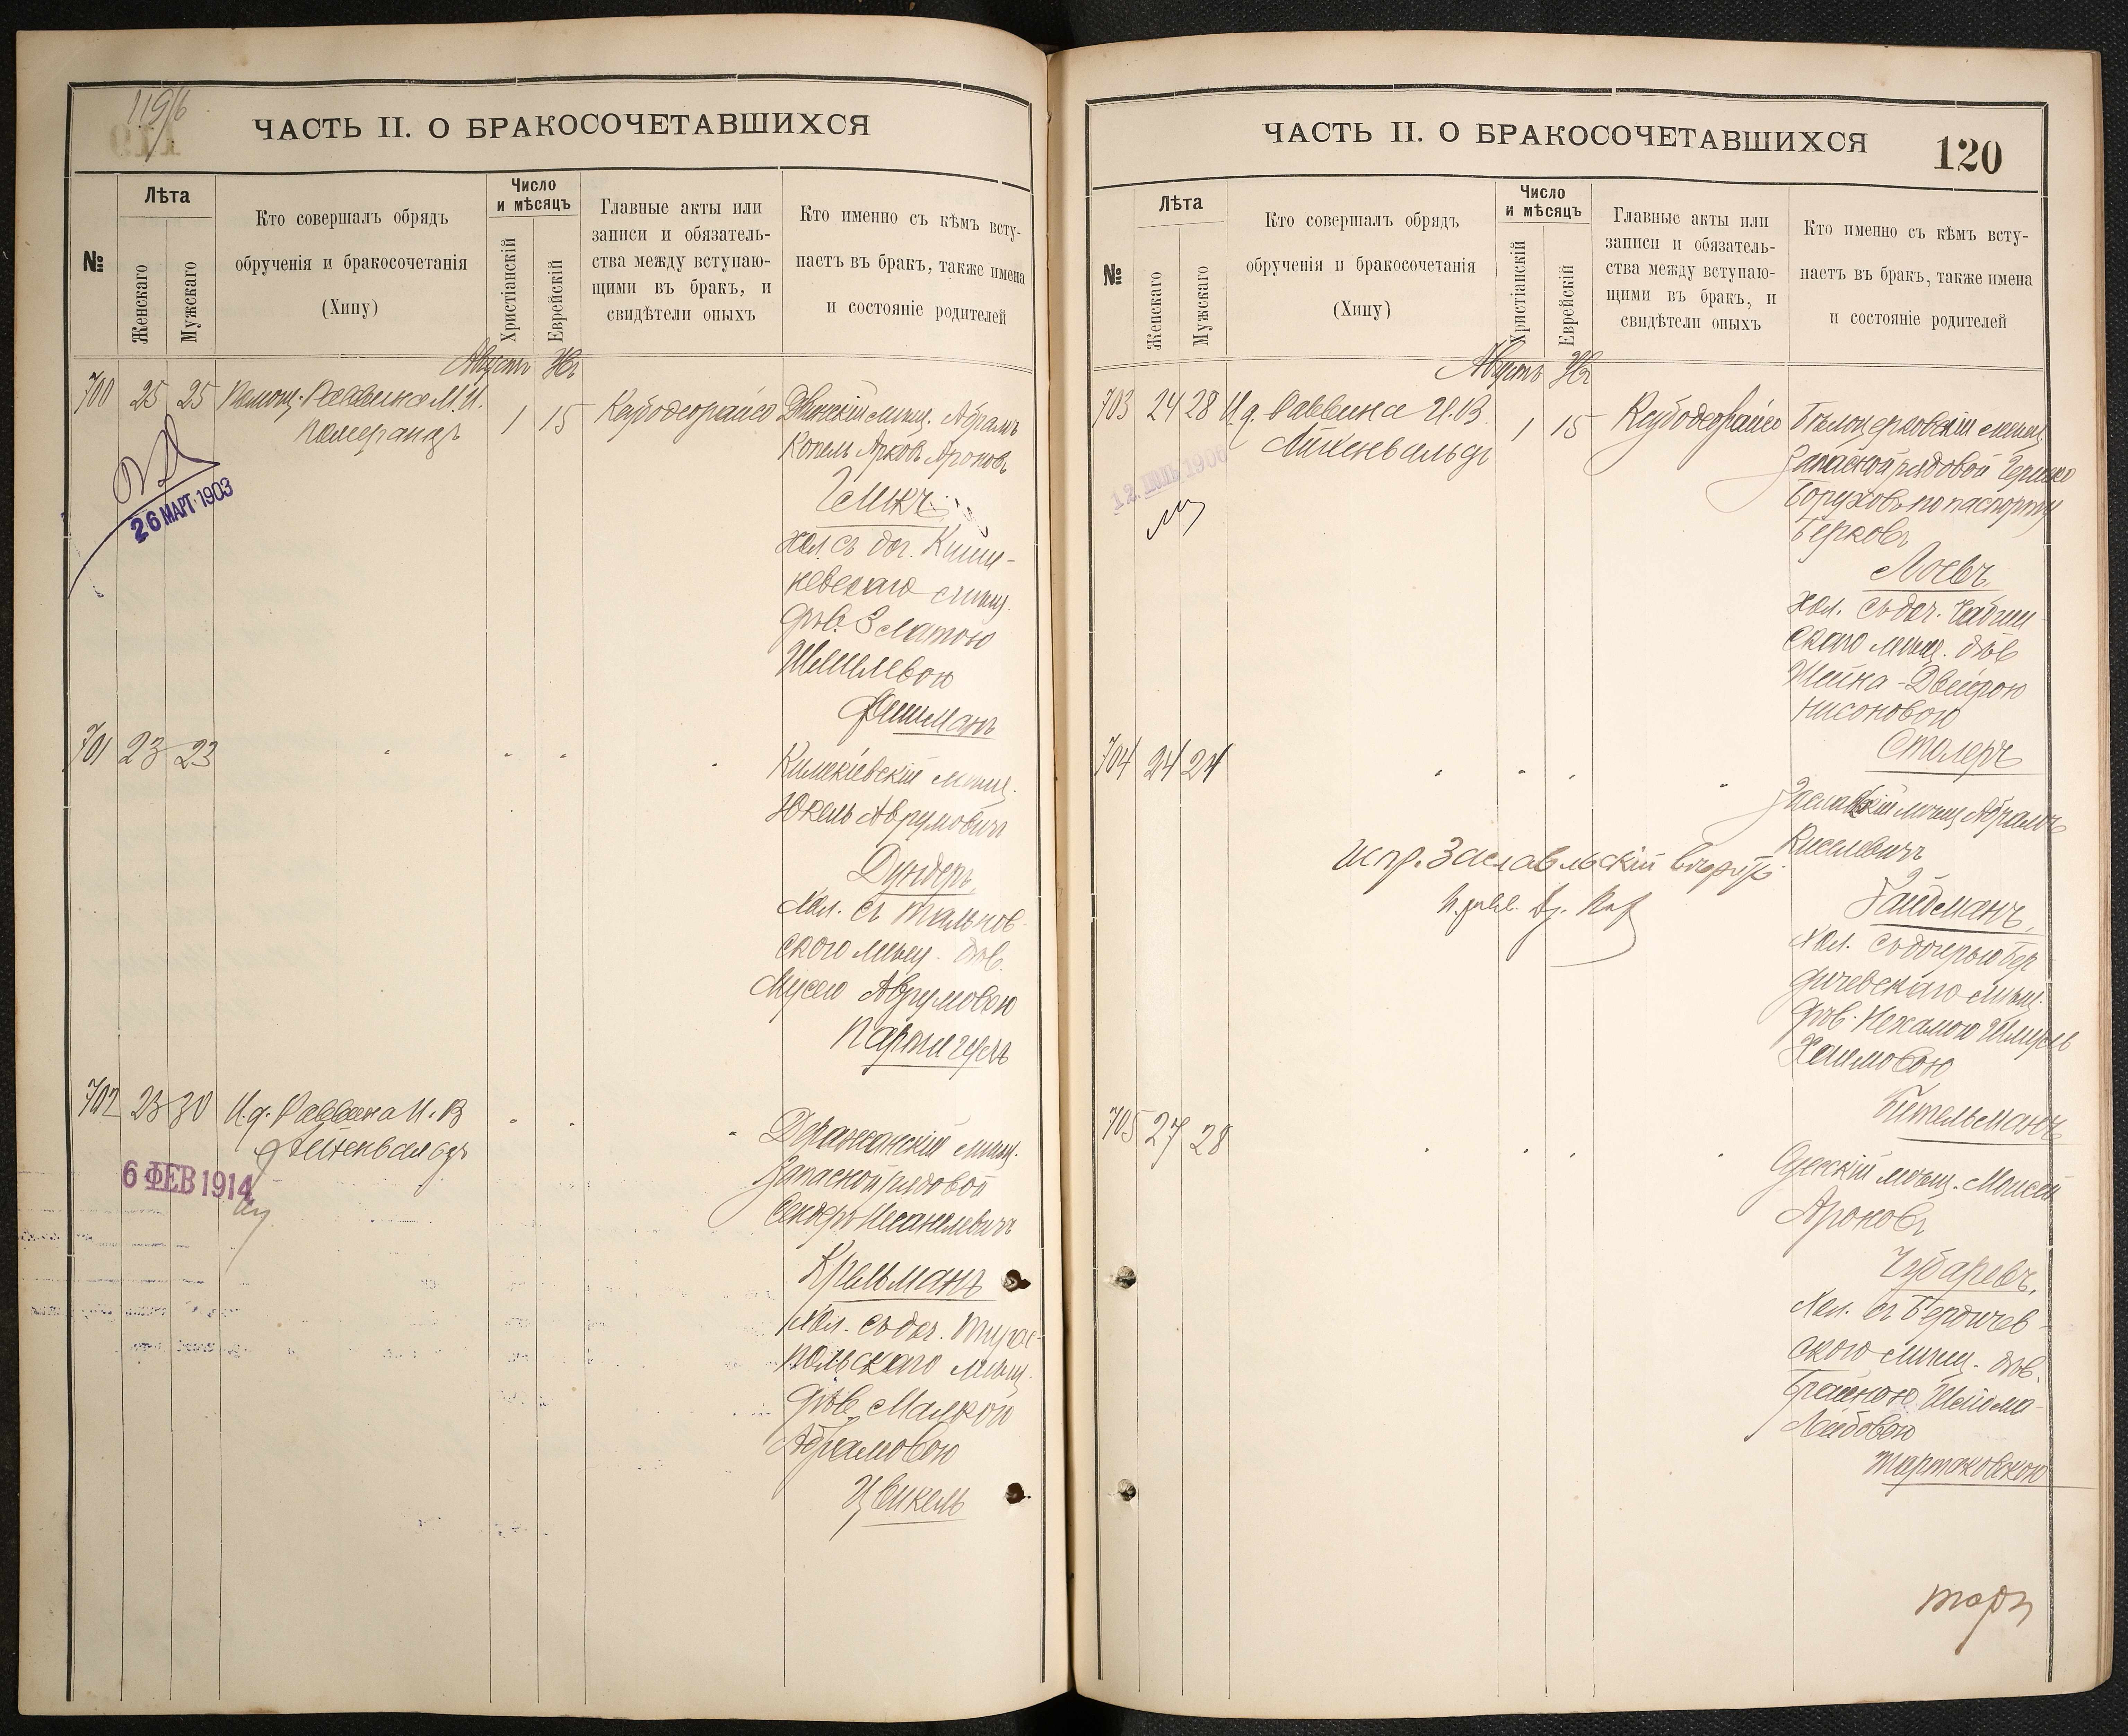 119/б
ЧАСТЬ II. О БРАКОСОЧЕТАВШИХСЯ
№
Лѣта
Женскаго
Мужскаго
Кто совершалъ обрядъ
обрученія и бракосочетанія
(Хипу)
Число
и мѣсяцъ
Христіанскій
Еврейскій
Главные акты или
записи и обязатель-
ства между вступаю-
щими въ бракъ, и
свидѣтели оныхъ
Кто именно съ кѣмъ всту-
паетъ въ бракъ, также имена
и состояніе родителей
Августъ
700 25 25 Помощ. Раввина М. И.
Померанцъ
1 15
26 МАРТ 1903
мѣщ. Абрамъ
Копель Арковъ Ароновъ
хол. съ доч. Киши-
невскаго мѣщ.
дѣв. Златою
Шмилевою
Фишманъ
701 23 23
мѣщ.
Юкель Аврумовичъ
Дундеръ,
хол. съ тальнов-
ского мѣщ. дѣв.
Мусею Аврумовою
702 23 30 И. д. Раввина И. В
Айхенвальдъ
6 ФЕВ 1914
мѣщ.
Запасной рядовой
Крельманъ
хол. съ доч. Тирас-
польскаго мѣщ.
дѣв. Малкою
Абрамовою
Цвикель
ЧАСТЬ II. О БРАКОСОЧЕТАВШИХСЯ
120
№
Лѣта
Женскаго
Мужскаго
Кто совершалъ обрядъ
обрученія и бракосочетанія
(Хипу)
Число
и мѣсяцъ
Христіанскій
Еврейскій
Главные акты или
записи и обязатель-
ства между вступаю-
щими въ бракъ, и
свидѣтели оныхъ
Кто именно съ кѣмъ всту-
паетъ въ бракъ, также имена
и состояніе родителей
Августъ
703 24 28 И. д. Раввина И. В.
Айхенвальдъ
1 15
12 1906
Бѣлоцерковскій мѣщ.
Запасной рядовой Гершко
Боруховъ по паспорту
Берковъ
Лоевъ
хол. съ доч.
скаго мѣщ. дѣв
Шейна-Двейрою
Нисоновою
Столеръ
704 24 24
Заславскій мѣщ Абрамъ
Киселевичъ
Испр. Заславльскій
Зайдманъ,
хол. съ дочерью Бер-
дичевскаго мѣщ.
дѣв. Нехамою Шмуль
Хаимовою
Бительманъ
705 27 28
Одесскій мѣщ. Моисей
Ароновъ
Чубаревъ,
хол. съ Бердичев-
ского мѣщ. дѣв.
Бранною Шлиома-
Лейбовою
Тартаковскою